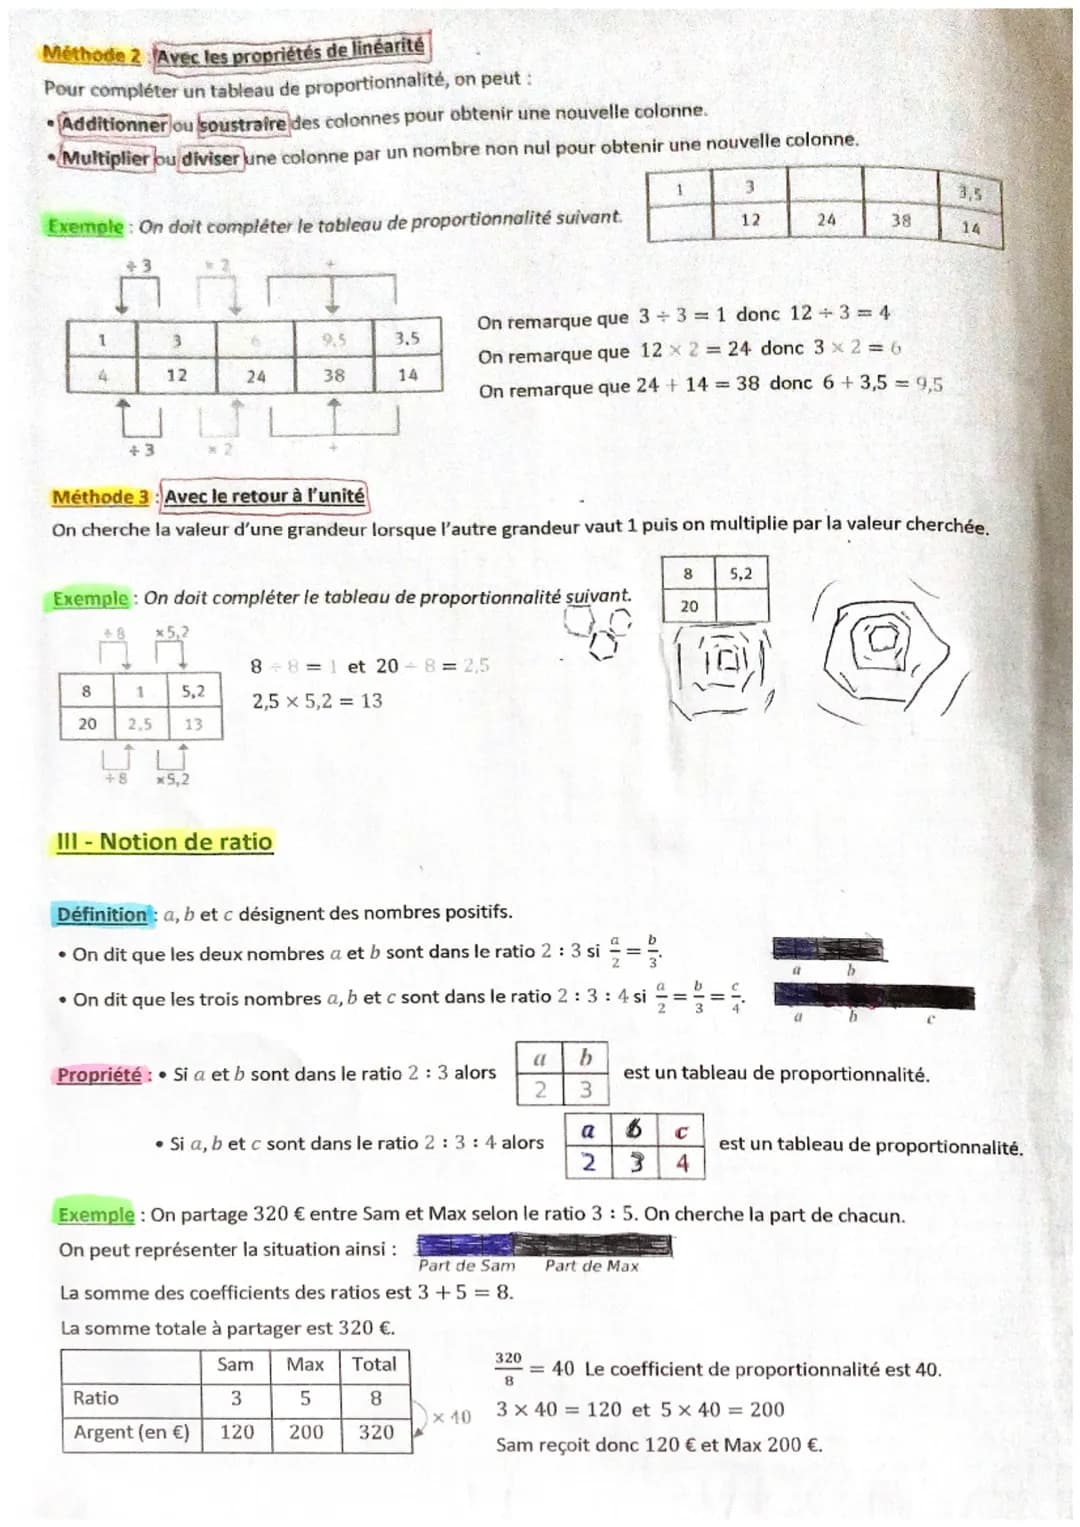 Méthode 2 : Avec les propriétés de linéarité
Pour compléter un tableau de proportionnalité, on peut :
• Additionner ou soustraire des colonnes pour obtenir une nouvelle colonne.
• Multiplier ou diviser une colonne par un nombre non nul pour obtenir une nouvelle colonne.
1 3 3,5
12 24 38 14
Exemple : On doit compléter le tableau de proportionnalité suivant.
÷ 3 × 2 +
1 3 6 9,5 3,5
4 12 24 38 14
÷ 3 × 2 +
On remarque que 3 ÷ 3 = 1 donc 12 ÷ 3 = 4
On remarque que 12 × 2 = 24 donc 3 × 2 = 6
On remarque que 24 + 14 = 38 donc 6 + 3,5 = 9,5
Méthode 3 : Avec le retour à l'unité
On cherche la valeur d'une grandeur lorsque l'autre grandeur vaut 1 puis on multiplie par la valeur cherchée.
8 5,2
20
Exemple : On doit compléter le tableau de proportionnalité suivant.
÷ 8 ×5,2
8 1 5,2
20 2,5 13
÷8 ×5,2
8 ÷ 8 = 1 et 20 ÷ 8 = 2,5
2,5 × 5,2 = 13
III - Notion de ratio
Définition : a, b et c désignent des nombres positifs.
• On dit que les deux nombres a et b sont dans le ratio 2 : 3 si a/2 = b/3.
a b
• On dit que les trois nombres a, b et c sont dans le ratio 2 : 3 : 4 si a/2 = b/3 = c/4.
a b c
Propriété : • Si a et b sont dans le ratio 2 : 3 alors
a b
2 3
est un tableau de proportionnalité.
• Si a, b et c sont dans le ratio 2 : 3 : 4 alors
a b c
2 3 4
est un tableau de proportionnalité.
Exemple : On partage 320 € entre Sam et Max selon le ratio 3 : 5. On cherche la part de chacun.
On peut représenter la situation ainsi :
Part de Sam Part de Max
La somme des coefficients des ratios est 3 + 5 = 8.
La somme totale à partager est 320 €.
Sam Max Total
Ratio 3 5 8
Argent (en €) 120 200 320
× 40
320/8 = 40 Le coefficient de proportionnalité est 40.
3 × 40 = 120 et 5 × 40 = 200
Sam reçoit donc 120 € et Max 200 €.